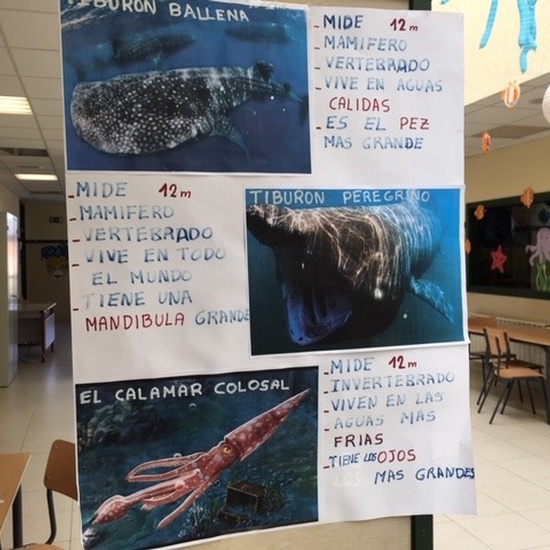 TIBURÓN BALLENA
- MIDE 12m
- MAMIFERO
- VERTEBRADO
- VIVE EN AGUAS
CALIDAS
- ES EL PEZ
MAS GRANDE
- MIDE 12m
- MAMIFERO
- VERTEBRADO
- VIVE EN TODO
EL MUNDO
- TIENE UNA
MANDIBULA GRANDE
TIBURON PEREGRINO
EL CALAMAR COLOSAL
- MIDE 12m
- INVERTEBRADO
- VIVEN EN LAS
AGUAS MAS
FRIAS
- TIENE LOS OJOS
LOS MAS GRANDES